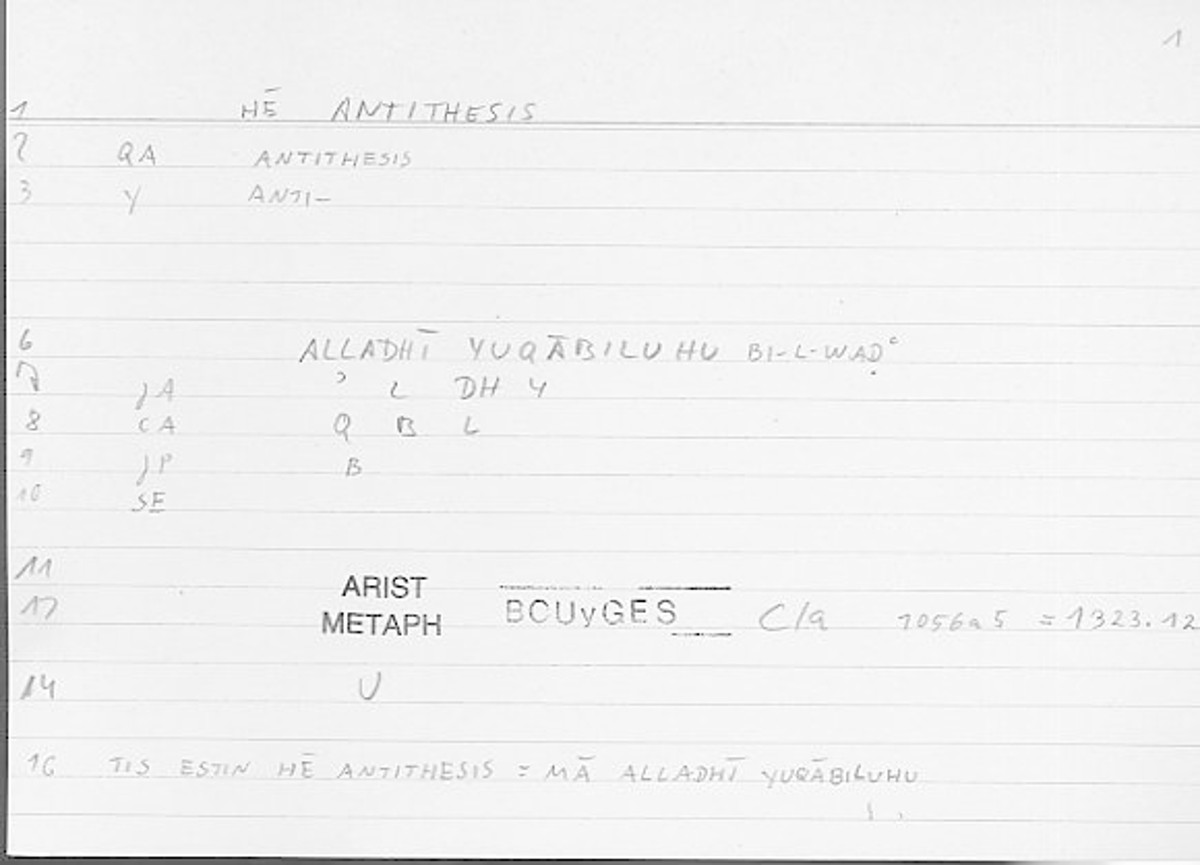 1
1 HĒ ANTITHESIS
2 QA ANTITHESIS
3 Y ANTI-
6 ALLADHĪ YUQĀBILUHU BI-L-WAḌʿ
7 JA ʾ L DH Y
8 CA Q B L
9 JP B
10 SE
11
ARIST
12 METAPH BCUyGES C/a 1056a5 = 1323.12
14 U
16 TIS ESTIN HĒ ANTITHESIS = MĀ ALLADHĪ YUQĀBILUHU